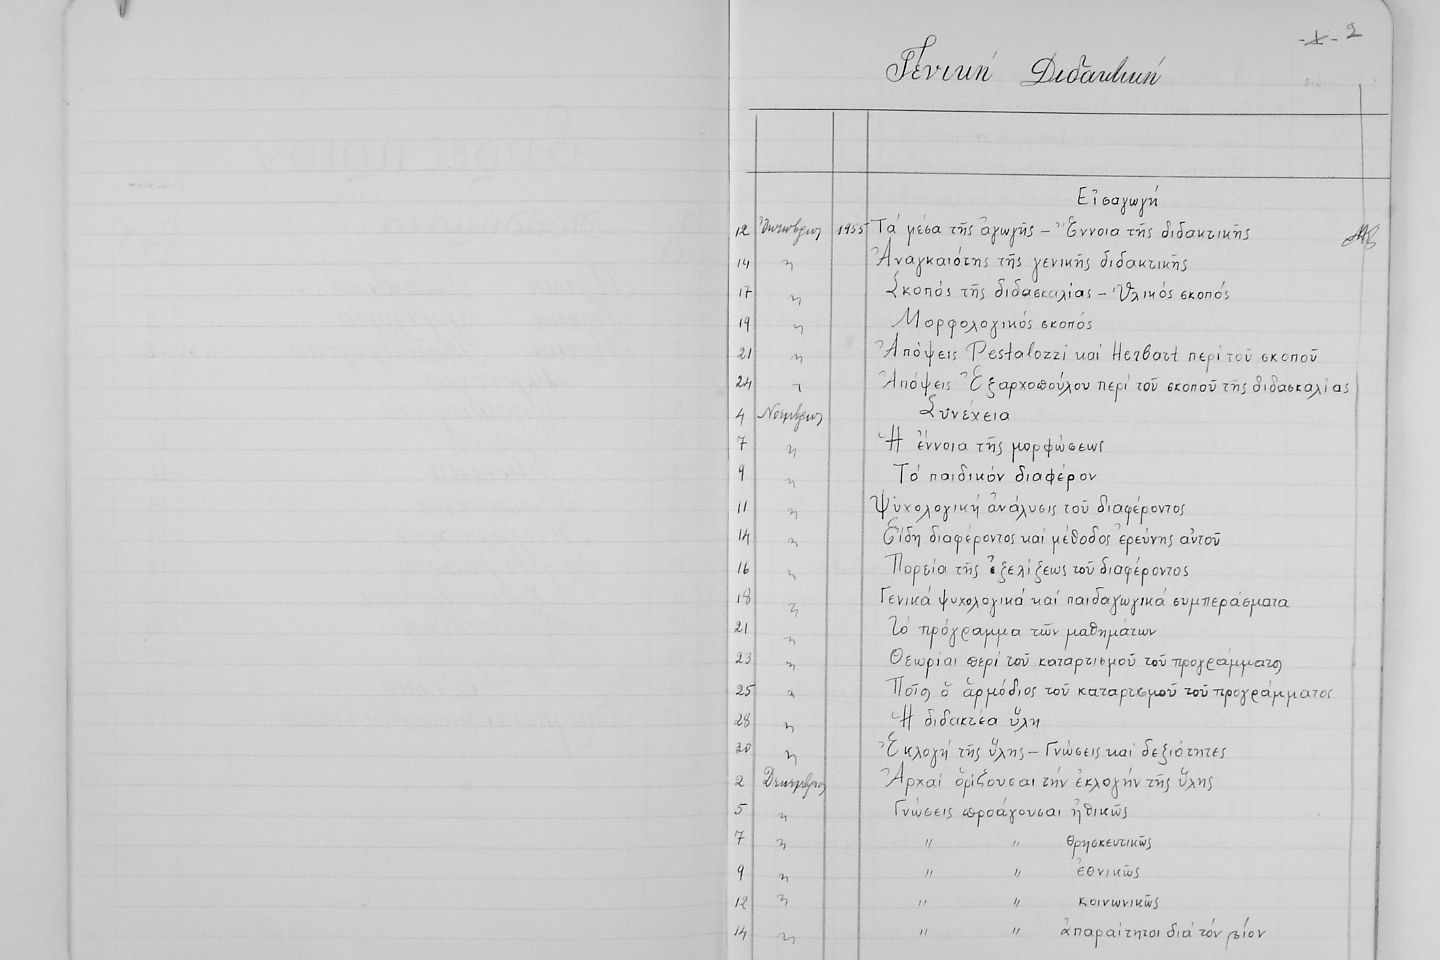 - 1 - 2
Γενική Διδακτική
Εἰσαγωγή
12 Ὀκτώβριος 1955 Τά μέσα τῆς ἀγωγῆς – Ἔννοια τῆς διδακτικῆς
14 " Ἀναγκαιότης τῆς γενικῆς διδακτικῆς
17 " Σκοπός τῆς διδασκαλίας – Ὑλικός σκοπός
19 " Μορφολογικός σκοπός
21 " Ἀπόψεις Pestalozzi καί Herbart περί τοῦ σκοποῦ
24 " Ἀπόψεις Ἐξαρχοπούλου περί τοῦ σκοποῦ τῆς διδασκαλίας
4 Νοέμβριος Συνέχεια
7 " Ἡ ἔννοια τῆς μορφώσεως
9 " Τό παιδικόν διαφέρον
11 " Ψυχολογική ἀνάλυσις τοῦ διαφέροντος
14 " Εἴδη διαφέροντος καί μέθοδος ἐρεύνης αὐτοῦ
16 " Πορεία τῆς ἐξελίξεως τοῦ διαφέροντος
18 " Γενικά ψυχολογικά καί παιδαγωγικά συμπεράσματα
21 " Τό πρόγραμμα τῶν μαθημάτων
23 " Θεωρίαι περί τοῦ καταρτισμοῦ τοῦ προγράμματος
25 " Ποῖος ὁ ἁρμόδιος τοῦ καταρτισμοῦ τοῦ προγράμματος
28 " Ἡ διδακτέα ὕλη
30 " Ἐκλογή τῆς ὕλης – Γνώσεις καί δεξιότητες
2 Δεκέμβριος Ἀρχαί ὁρίζουσαι τήν ἐκλογήν τῆς ὕλης
5 " Γνώσεις προάγουσαι ἠθικῶς
7 " " " θρησκευτικῶς
9 " " " ἐθνικῶς
12 " " " κοινωνικῶς
14 " " " ἀπαραίτητοι διά τόν βίον